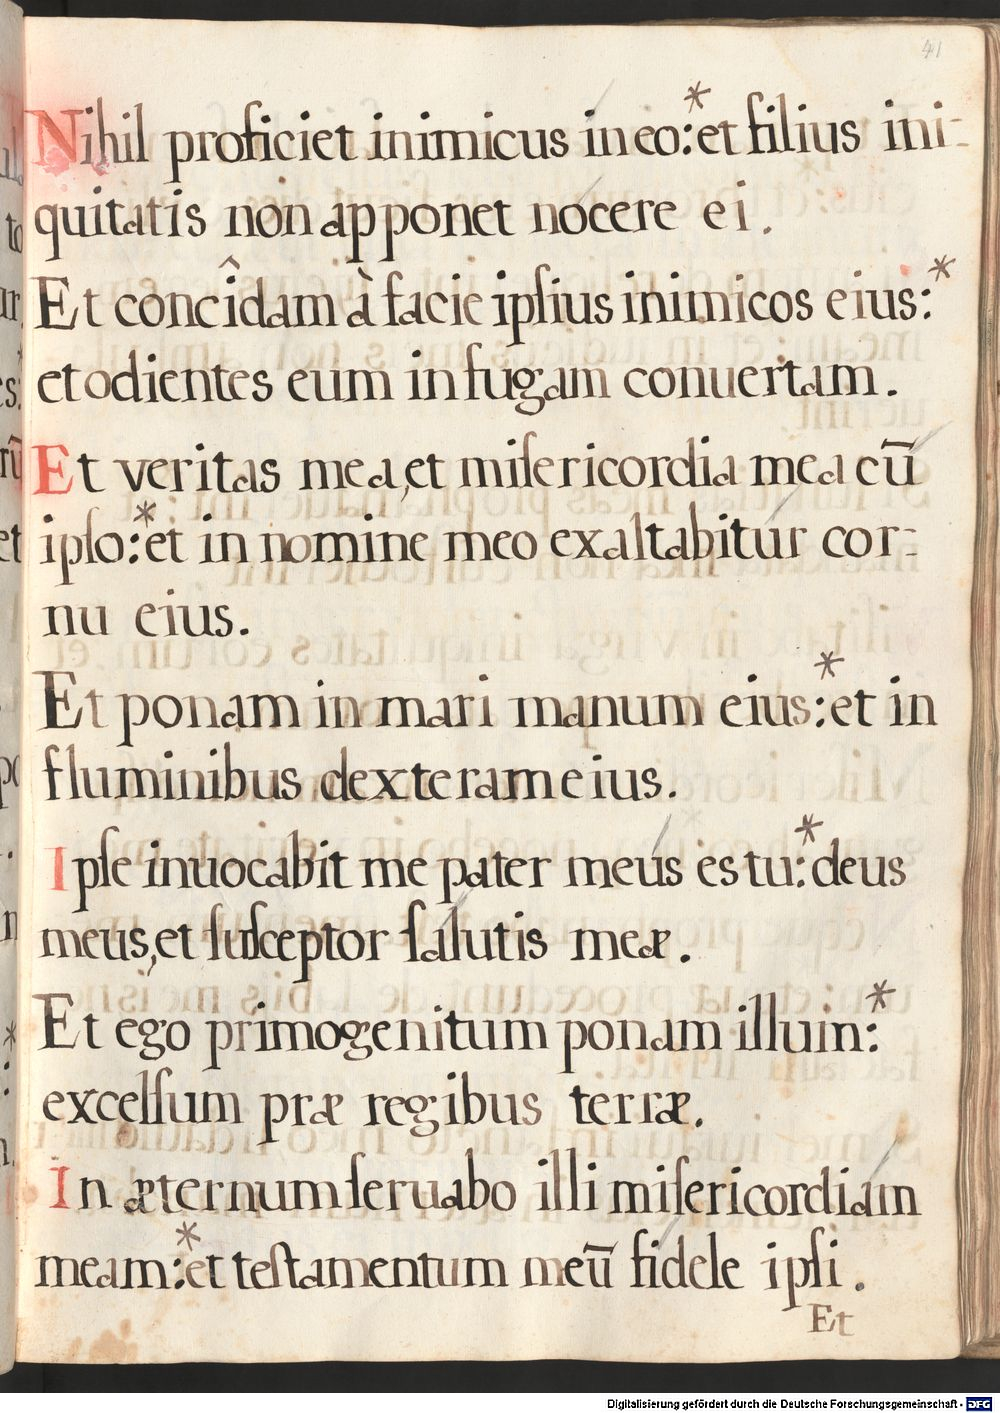 41
Nihil proficiet inimicus in eo:* et filius ini-
quitatis non apponet nocere ei.
Et concîdam à facie ipſius inimicos eius:*
et odientes eum in fugam conuertam.
Et veritas mea, et miſericordia mea cū
ipſo:* et in nomine meo exaltabitur cor-
nu eius.
Et ponam in mari manum eius:* et in
fluminibus dexteram eius.
Ipſe inuocabit me pater meus es tu:* deus
meus, et ſuſceptor ſalutis meæ.
Et ego primogenitum ponam illum:*
excelſum præ regibus terræ.
In æternum ſeruabo illi miſericordiam
meam:* et teſtamentum meū fidele ipſi.
Et
Digitalisierung gefördert durch die Deutsche Forschungsgemeinschaft - DFG